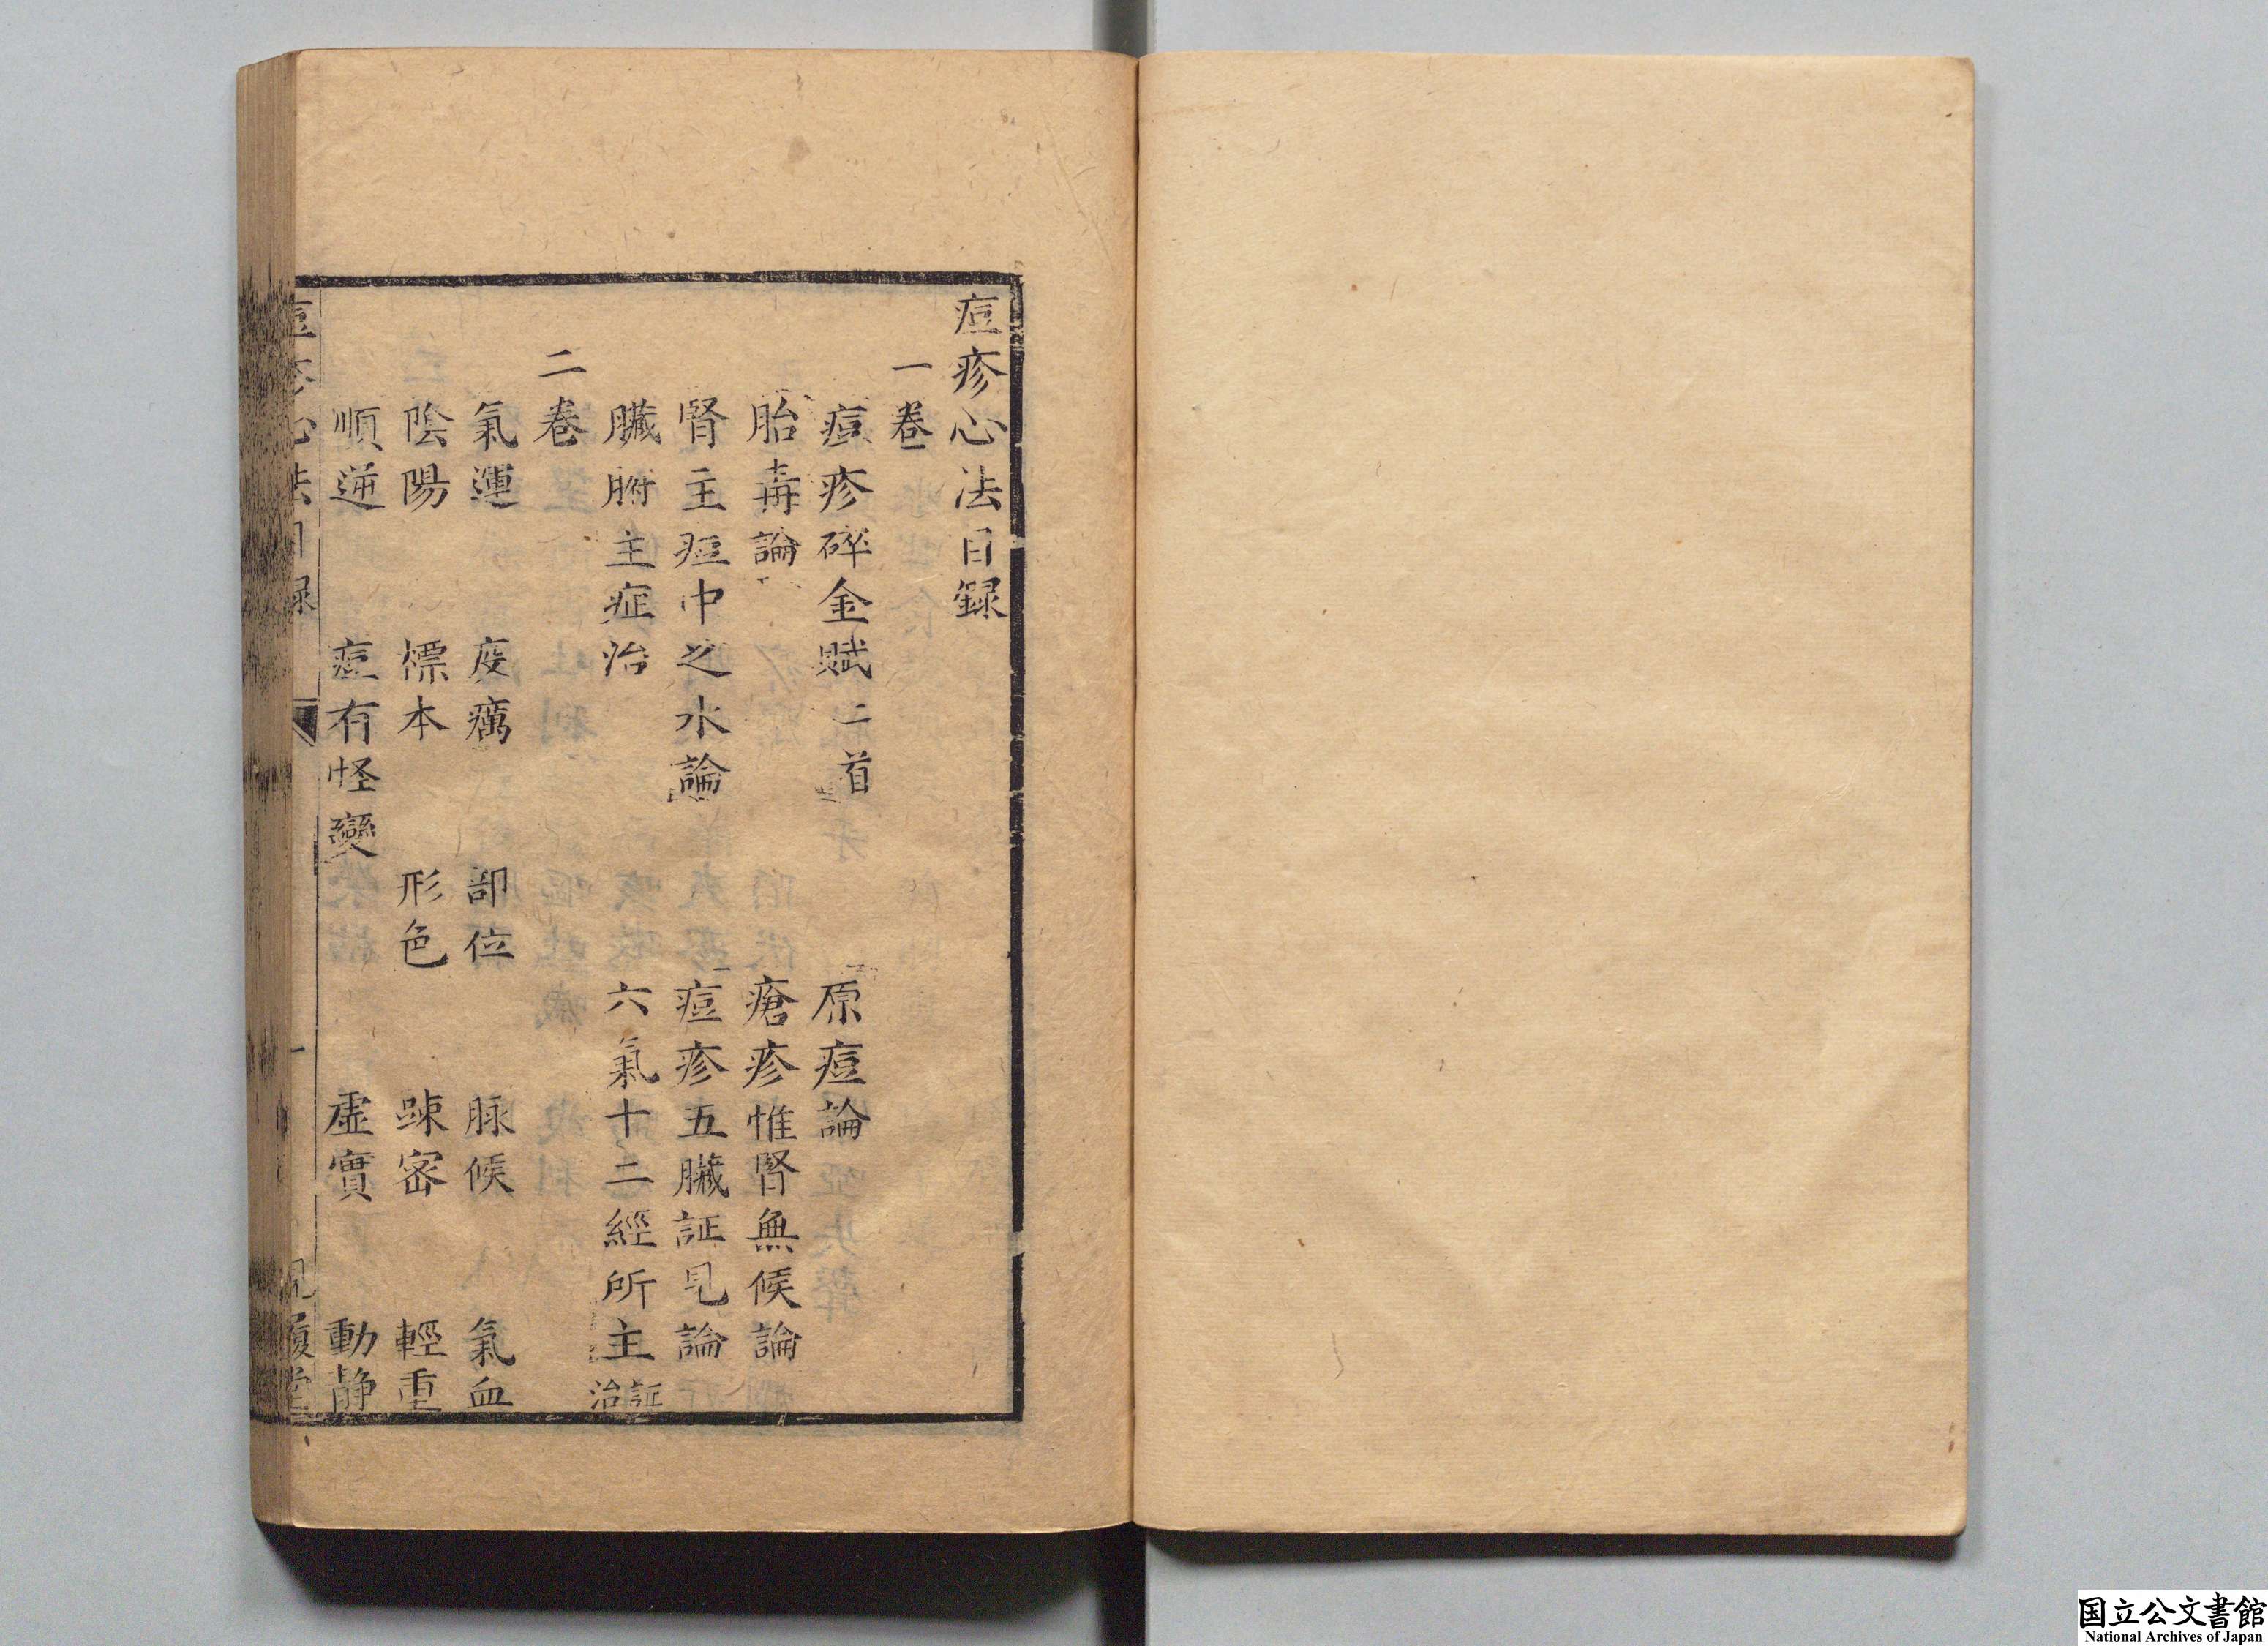 痘疹心法目録
一卷
痘疹碎金賦二首　原痘論
胎毒論　瘡疹惟腎無候論
腎主痘中之水論　痘疹五臟証見論
臟腑主症治　六氣十二經所主証治
二卷
氣運　疫癘　部位　脉候　氣血
陰陽　標本　形色　踈宻　輕重
順逆　痘有怪變　虛實　動静
痘疹心法目録　一
国立公文書館
National Archives of Japan